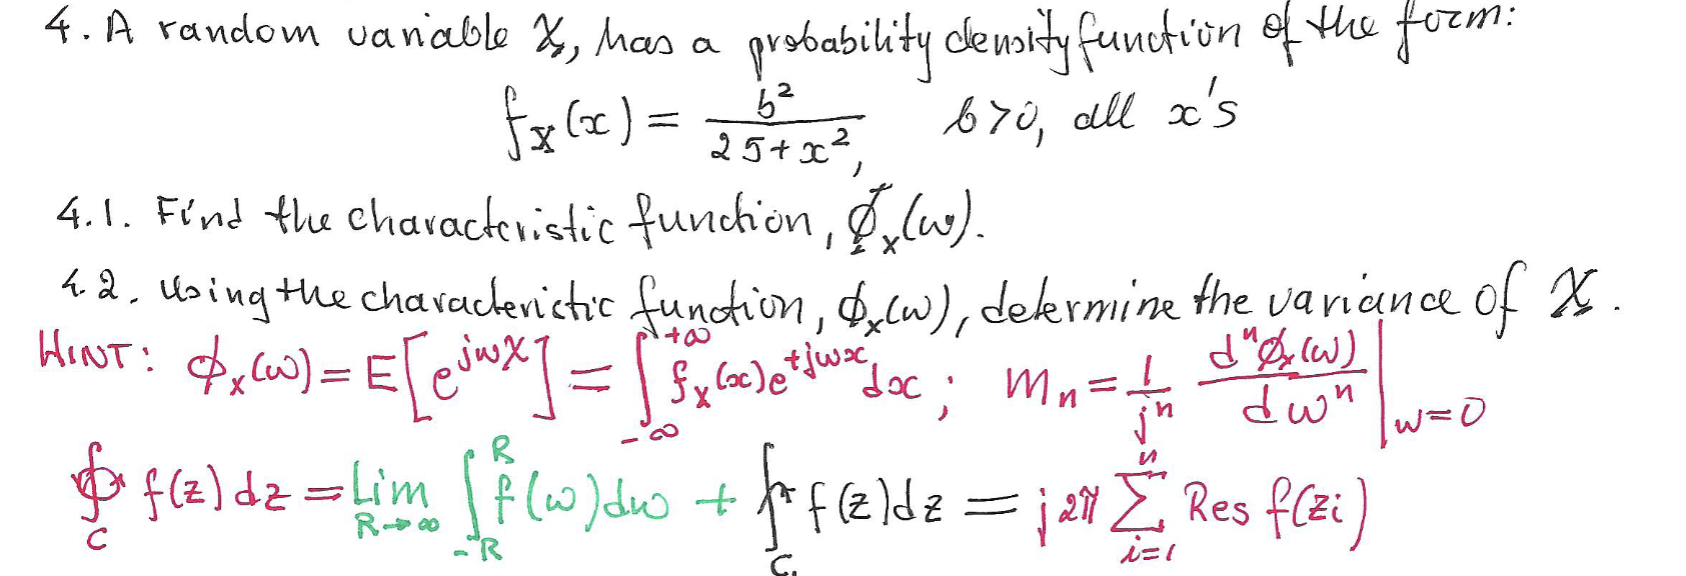 4. A random variable X, has a probability density function of the form:
f_X(x) = b²/(25+x²), b>0, all x's
4.1. Find the characteristic function, Φ_x(ω).
4.2. Using the characteristic function, ϕ_x(ω), determine the variance of X.
HINT: ϕ_x(ω) = E[e^{jωX}] = ∫_{-∞}^{+∞} f_x(x)e^{+jωx}dx; m_n = 1/j^n d^nϕ_x(ω)/dω^n |_{ω=0}
∮_C f(z)dz = Lim_{R→∞} ∫_{-R}^{R} f(ω)dω + ∫_{C.} f(z)dz = j2π Σ_{i=1}^{n} Res f(zi)